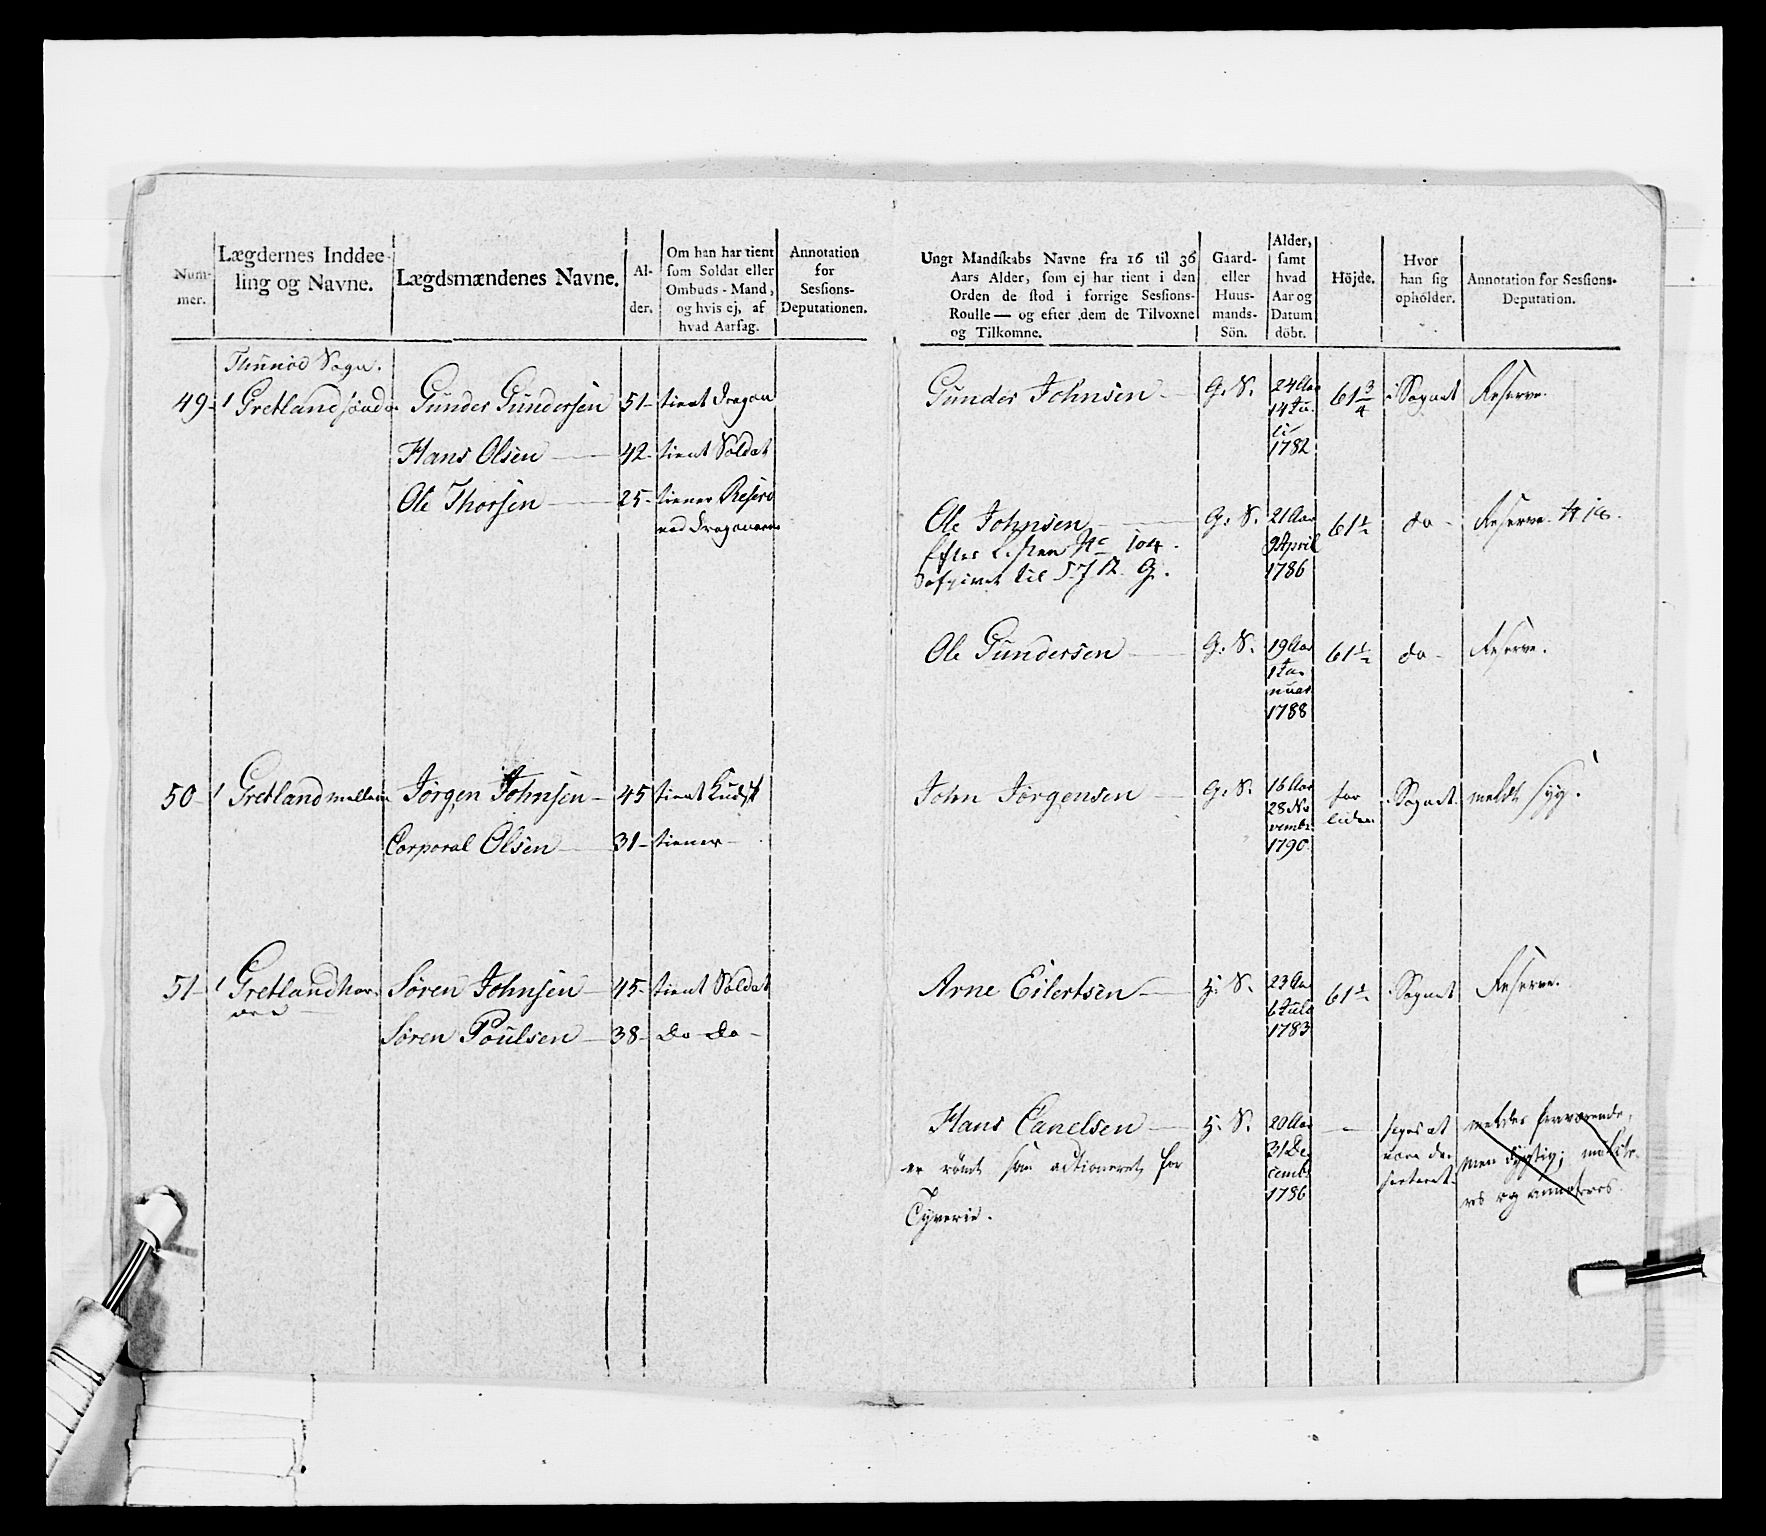 Num-
mer.
Lægdernes Inddee-
ling og Navne.
Lægdsmændenes Navne.
Al-
der.
Om han har tient
som Soldat eller
Ombuds-Mand,
og hvis ej, af
hvad Aarsag.
Annotation
for
Sessions-
Deputationen.
Ungt Mandskabs Navne fra 16 til 36
Aars Alder, som ej har tient i den
Orden de stod i forrige Sessions-
Roulle — og efter dem de Tilvoxne
og Tilkomne.
Gaard-
eller
Huus-
mands-
Sön.
Alder,
samt
hvad
Aar og
Datum
döbt.
Höjde.
Hvor
han sig
opholder.
Annotation for Sessions-
Deputation.
Sogn.
49 1 Gretland Gunder Gundersen 51 tient Dragon
Hans Olsen 42 tient Soldat
Ole Thorsen 25 tiener Reserv
ved
Gunder Johnsen G. S. 24 Aar
14 Ju-
li
1782
61 3/4 i Sognet Reserve.
Ole Johnsen G. S. 21 Aar
9 April
1786
61 1/2 do Reserve
Efter No 104.
til
Ole Gundersen G. S. 19 Aar
1 Ja-
nuar
1788
61 1/2 do Reserve.
50 1 Gretland mellem Jørgen Johnsen 45 tient
Corporal Olsen 31 tiener
John Jörgensen G. S. 16 Aar
28 No
vembr
1790
for
liden
i Sognet meldt syg.
51 1 Gretland Søren Johnsen 45 tient Soldat
Søren Poulsen 38 Do Do
Arne Eilertsen H. S. 23 Aar
6 Juli
1783
61 1/2 i Sognet Reserve.
Hans H. S. 20 Aar
31 De
cembr
1786
siges at
være de-
serteret.
meldes fraværende,
men dygtig;
og
er rømt som actioneret for
Tyverie.